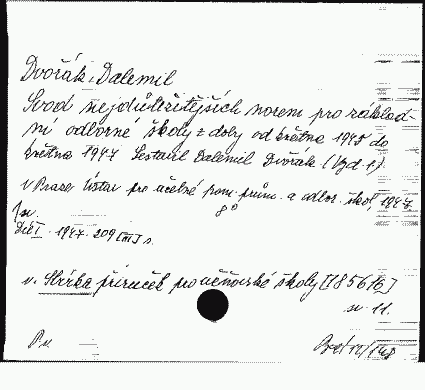 Dvořák, Dalemil
Svod nejdůležitějších norem pro základ-
ní odborné školy z doby od května 1945 do
května 1947 Sestavil Dalemil Dvořák (Vyd. 1)
V Praze, Ústav pro učebné pom. prům. a odbor. škol, 1947
8°
1 sv.
Díl I. 1947. 209 [III] s.
v. Sbírka příruček pro učňovské školy [185616]
sv. 11.